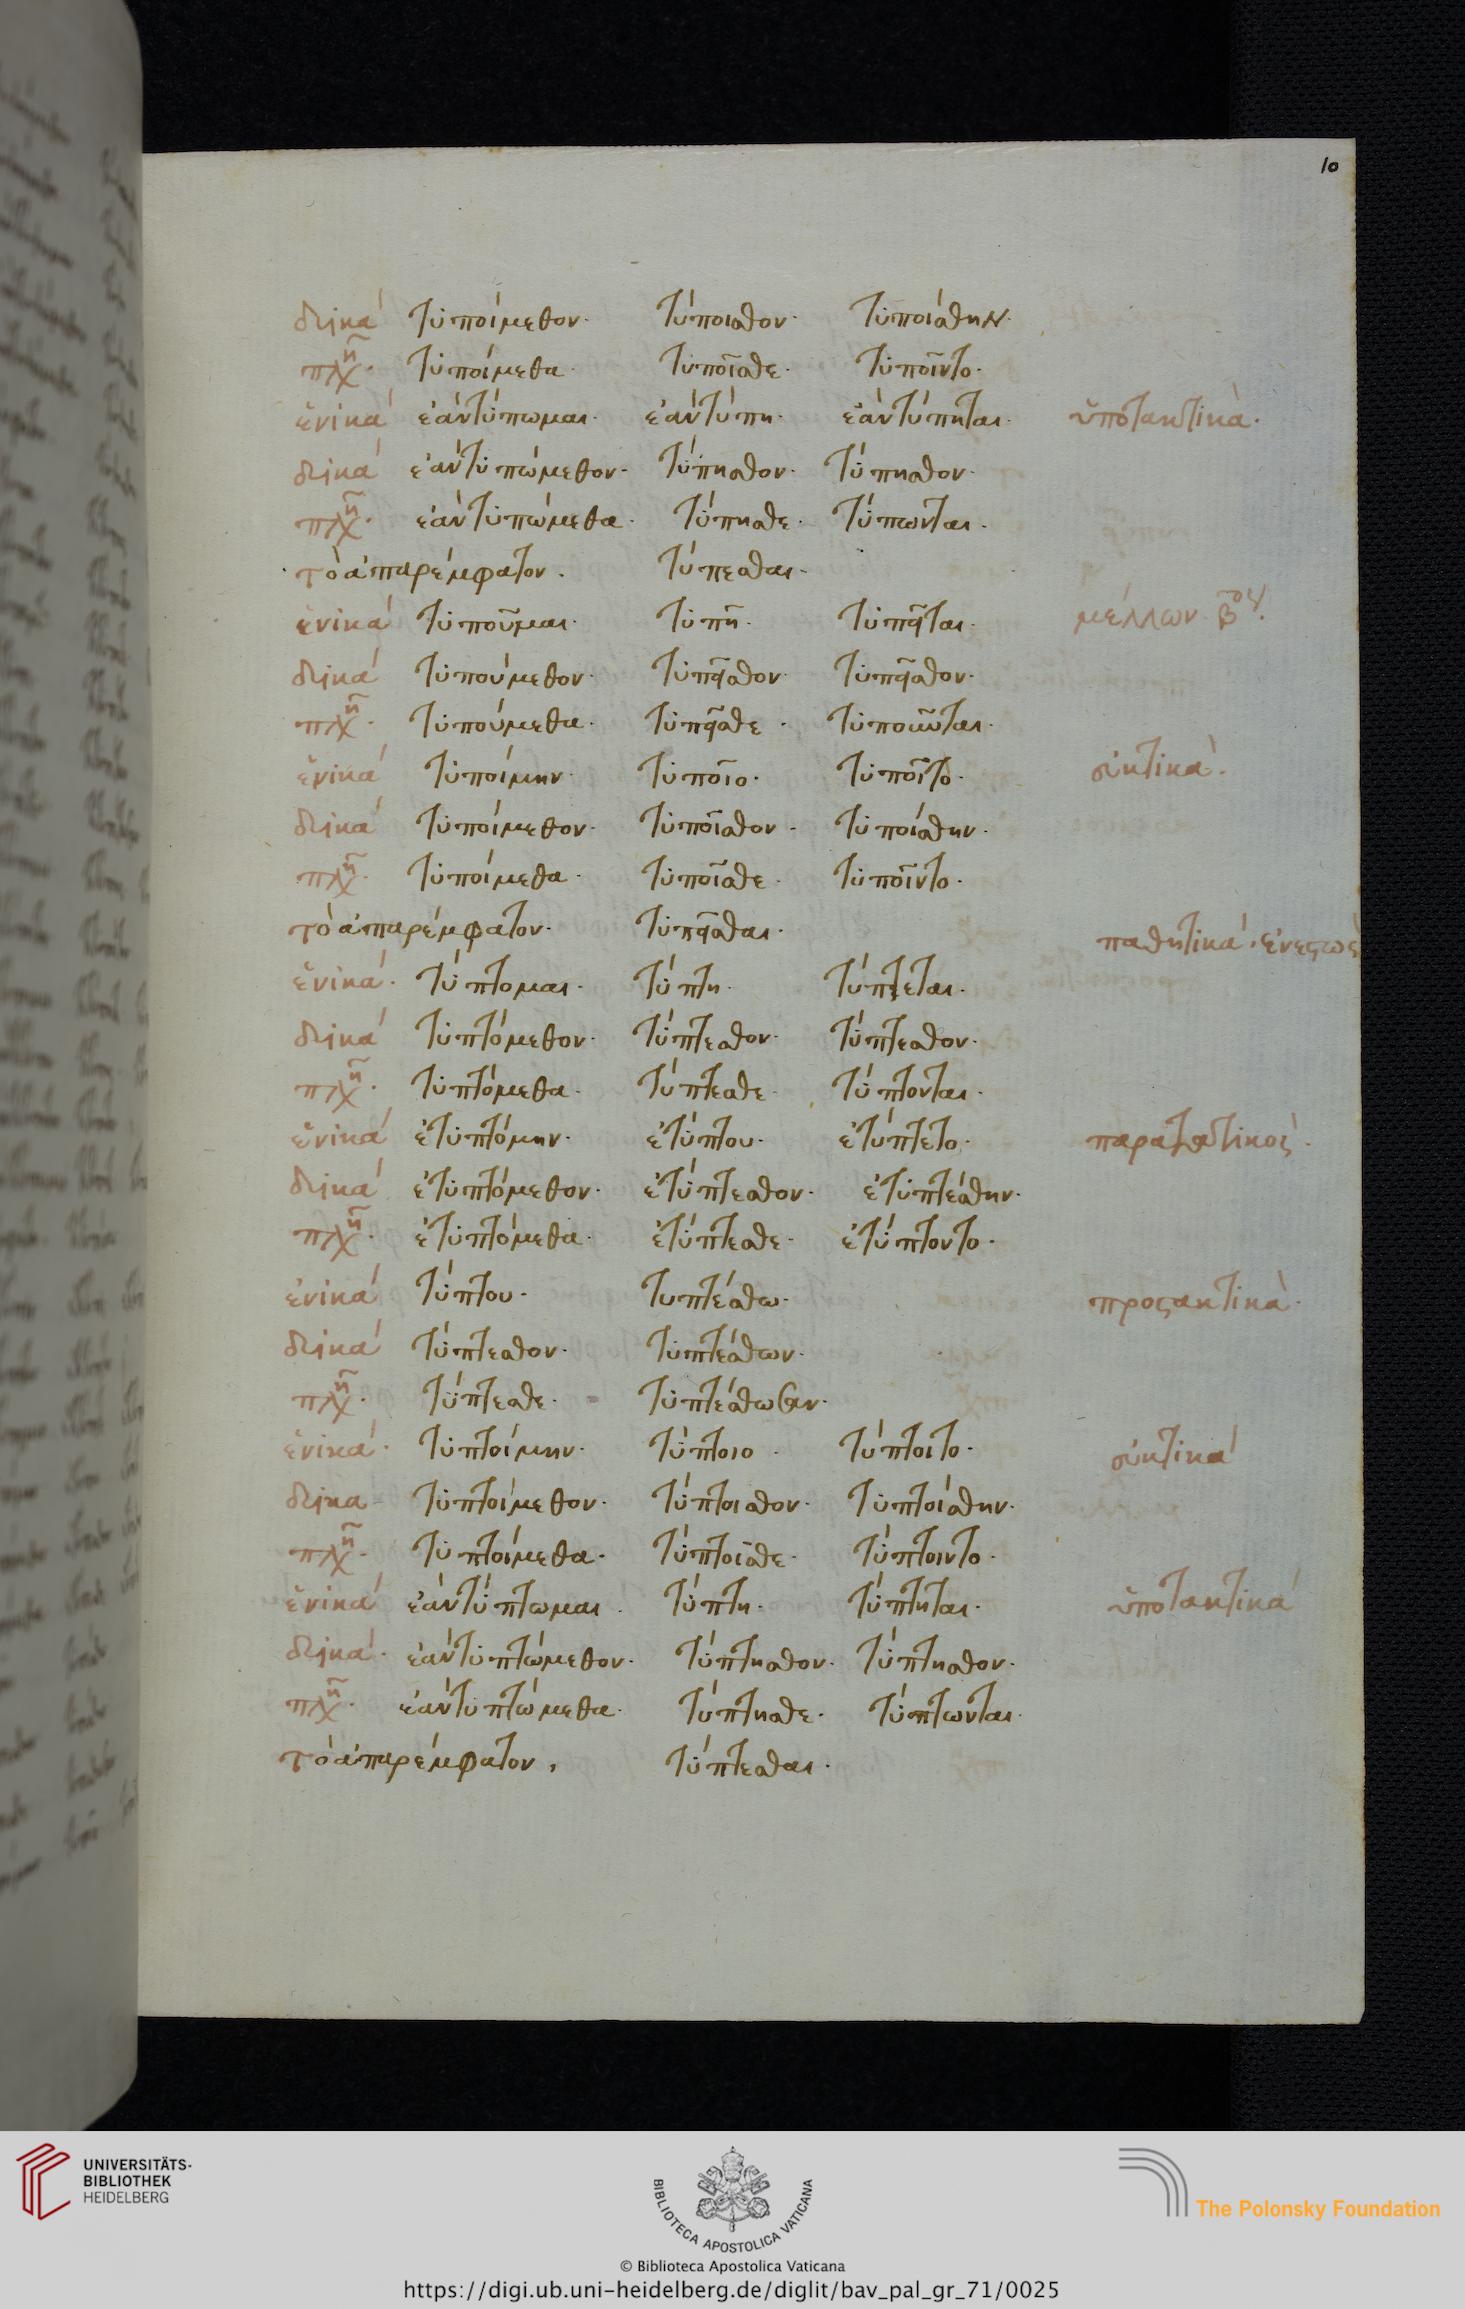 10
δυϊκά τυποίμεθον· τύποισθον· τυποίσθην·
πλ̅χ̅η· τυποίμεθα· τυποῖσθε· τυποῖντο·
ἑνικά ἐὰν τύπωμαι· ἐὰν τύπη· ἐὰν τύπηται· ὑποτακτικὰ·
δυϊκά ἐὰν τυπώμεθον· τύπησθον· τύπησθον·
πλ̅χ̅η· ἐὰν τυπώμεθα· τύπησθε· τύπωνται·
τὸ ἀπαρέμφατον. τύπεσθαι·
ἑνικά τυποῦμαι· τυπῆ· τυπεῖται· μέλλων β̅ου·
δυϊκά τυπούμεθον· τυπεῖσθον· τυπεῖσθον·
πλ̅χ̅η· τυπούμεθα· τυπεῖσθε· τυποῦνται·
ἑνικά τυποίμην· τυποῖο· τυποῖτο· εὐκτικὰ·
δυϊκά τυποίμεθον· τυποῖσθον· τυποίσθην·
πλ̅χ̅η· τυποίμεθα· τυποῖσθε· τυποῖντο·
τὸ ἀπαρέμφατον· τυπεῖσθαι· παθητικά· ἐνεστὼς
ἑνικά· τύπτομαι· τύπτη· τύπτεται·
δυϊκά τυπτόμεθον· τύπτεσθον· τύπτεσθον·
πλ̅χ̅η· τυπτόμεθα· τύπτεσθε· τύπτονται·
ἑνικά ἐτυπτόμην· ἐτύπτου· ἐτύπτετο· παρατατικὸς·
δυϊκά ἐτυπτόμεθον· ἐτύπτεσθον· ἐτυπτέσθην·
πλ̅χ̅η· ἐτυπτόμεθα· ἐτύπτεσθε· ἐτύπτοντο·
ἑνικά τύπτου· τυπτέσθω· προςακτικὰ·
δυϊκά τύπτεσθον· τυπτέσθων·
πλ̅χ̅η· τύπτεσθε· τυπτέσθωσαν·
ἑνικά· τυπτοίμην· τύπτοιο· τύπτοιτο· εὐκτικά
δυϊκα τυπτοίμεθον· τύπτοισθον· τυπτοίσθην·
πλ̅χ̅η· τυπτοίμεθα· τύπτοισθε· τύπτοιντο·
ἑνικά ἐὰν τύπτωμαι· τύπτη· τύπτηται· ὑποτακτικά
δυϊκά· ἐὰν τυπτώμεθον· τύπτησθον· τύπτησθον·
πλ̅χ̅η· ἐὰν τυπτώμεθα· τύπτησθε· τύπτωνται·
τὸ ἀπαρέμφατον, τύπτεσθαι·
UNIVERSITÄTS-
BIBLIOTHEK
HEIDELBERG
BIBLIOTECA APOSTOLICA VATICANA
The Polonsky Foundation
© Biblioteca Apostolica Vaticana
https://digi.ub.uni-heidelberg.de/diglit/bav_pal_gr_71/0025